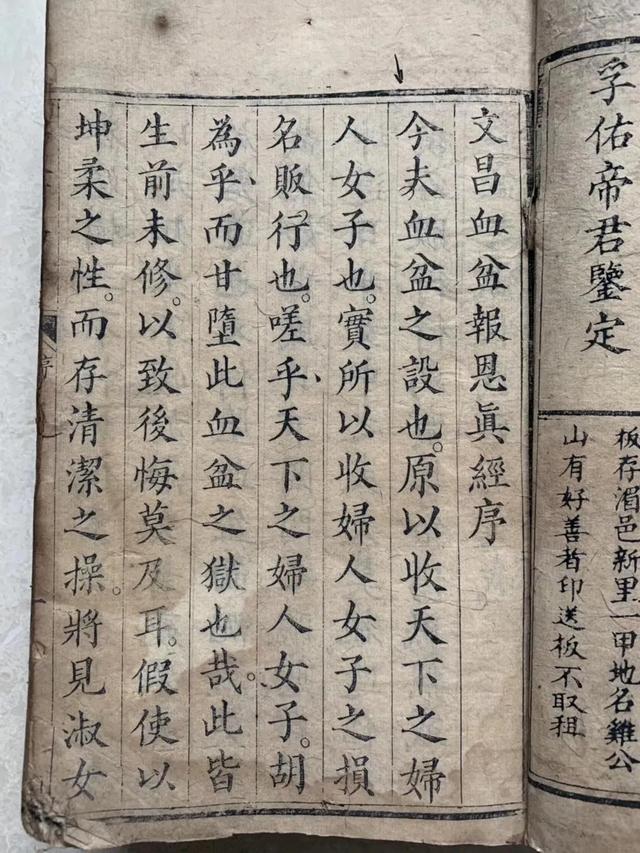 孚佑帝君鑒定
板存湄邑新里一甲地名雞公
山有好善者印送板不取租
文昌血盆報恩眞經序
今夫血盆之設也。原以收天下之婦
人女子也。實所以收婦人女子之損
名販行也。嗟乎、天下之婦人女子。胡
為乎、而甘墮此血盆之獄也哉。此皆
生前未修。以致後悔莫及耳。假使以
坤柔之性。而存清潔之操。將見淑女
序